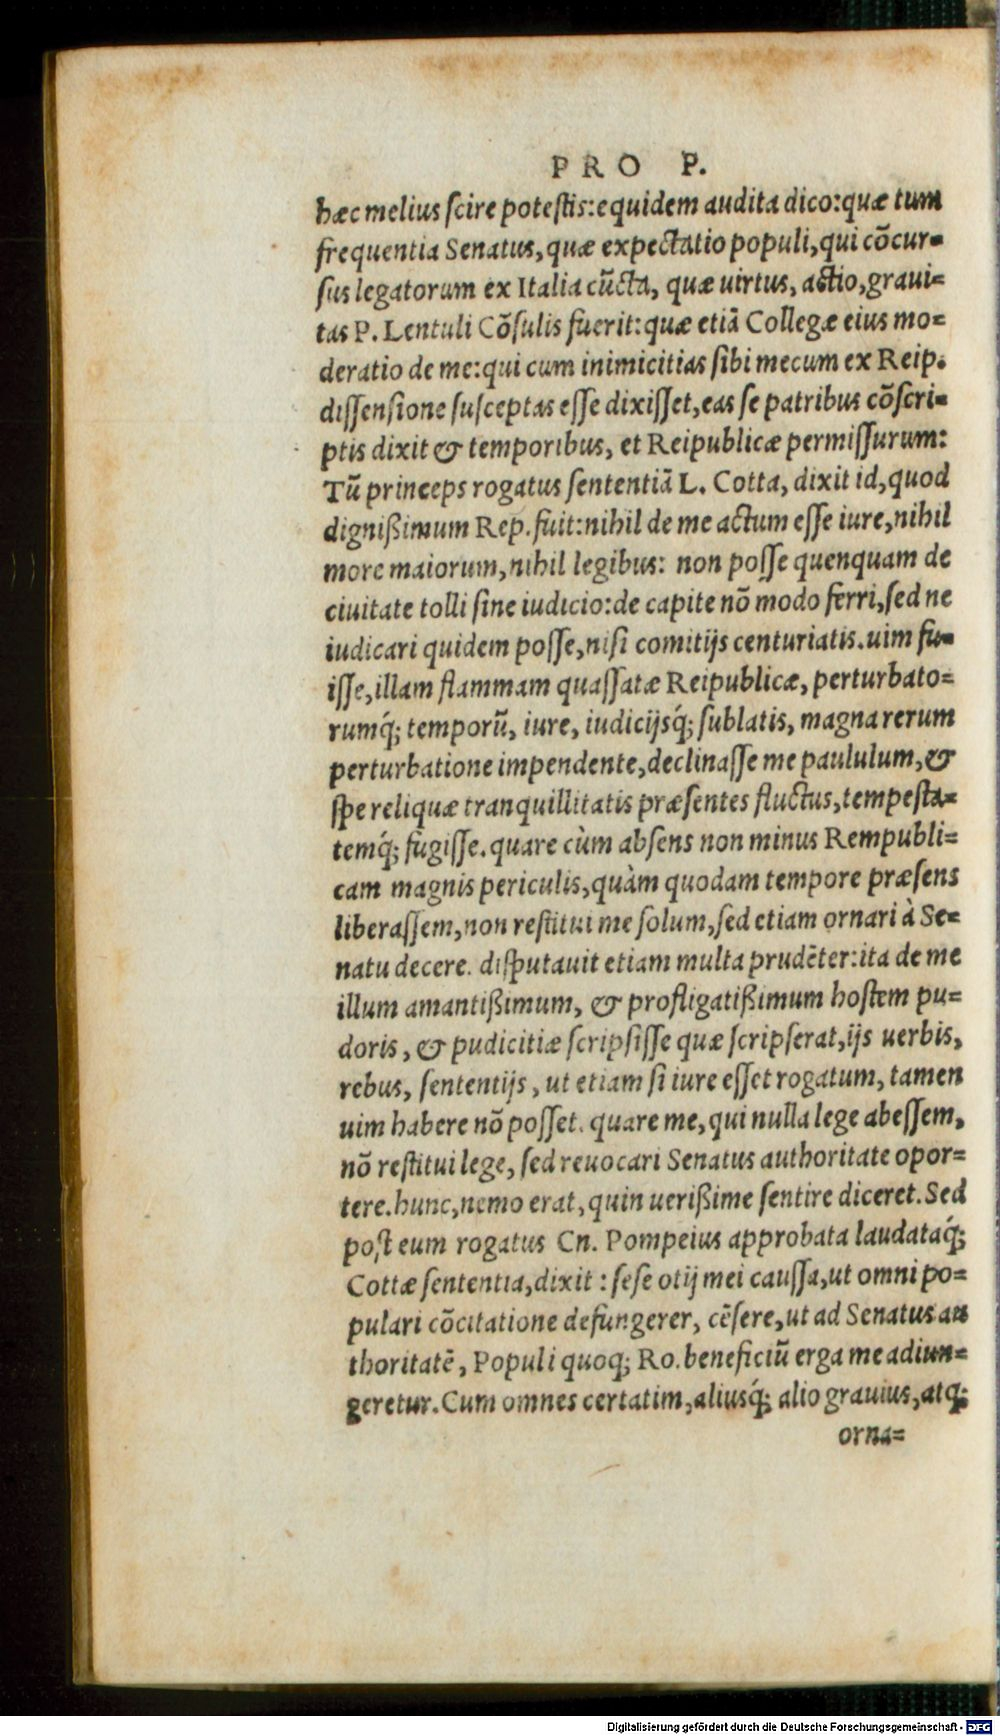 PRO P.
hæc melius scire potestis: equidem audita dico: quæ tum
frequentia Senatus, quæ expectatio populi, qui cõcur=
sus legatorum ex Italia cũcta, quæ uirtus, actio, graui=
tas P. Lentuli Cõsulis fuerit: quæ etiã Collegæ eius mo=
deratio de me: qui cum inimicitias sibi mecum ex Reip.
dissensione susceptas esse dixisset, eas se patribus cõscri=
ptis dixit & temporibus, et Reipublicæ permissurum:
Tũ princeps rogatus sententiã L. Cotta, dixit id, quod
dignißimum Rep. fuit: nihil de me actum esse iure, nihil
more maiorum, nihil legibus: non posse quenquam de
ciuitate tolli sine iudicio: de capite nõ modo ferri, sed ne
iudicari quidem posse, nisi comitijs centuriatis. uim fu=
isse, illam flammam quassatæ Reipublicæ, perturbato=
rumq́; temporũ, iure, iudicijsq́; sublatis, magna rerum
perturbatione impendente, declinasse me paululum, &
spe reliquæ tranquillitatis præsentes fluctus, tempesta=
temq́; fugisse. quare cùm absens non minus Rempubli=
cam magnis periculis, quàm quodam tempore præsens
liberassem, non restitui me solum, sed etiam ornari à Se=
natu decere. disputauit etiam multa prudẽter: ita de me
illum amantißimum, & profligatißimum hostem pu=
doris, & pudicitiæ scripsisse quæ scripserat, ijs uerbis,
rebus, sententijs, ut etiam si iure esset rogatum, tamen
uim habere nõ posset. quare me, qui nulla lege abessem,
nõ restitui lege, sed reuocari Senatus authoritate opor=
tere. hunc, nemo erat, quin uerißime sentire diceret. Sed
post eum rogatus Cn. Pompeius approbata laudataq́;
Cottæ sententia, dixit: sese otij mei caussa, ut omni po=
pulari cõcitatione defungerer, cẽsere, ut ad Senatus au
thoritatẽ, Populi quoq; Ro. beneficiũ erga me adiun=
geretur. Cum omnes certatim, aliusq́; alio grauius, atq;
orna=
Digitalisierung gefördert durch die Deutsche Forschungsgemeinschaft - DFG